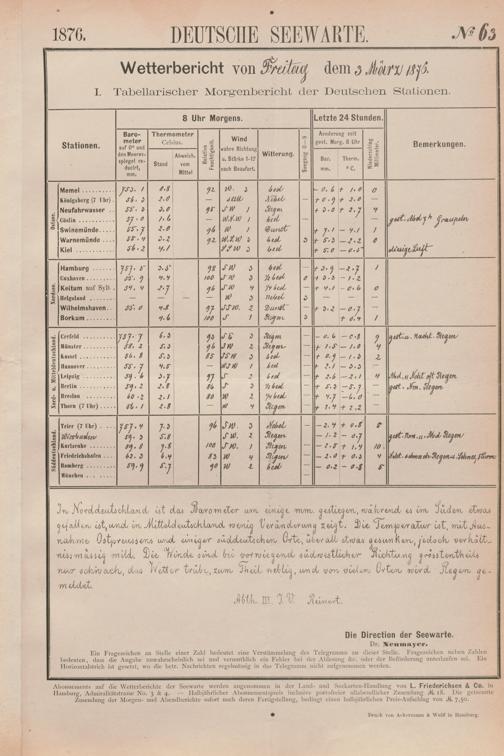 1876. DEUTSCHE SEEWARTE. No 63
Wetterbericht von Freitag dem 3 März 1876.
I. Tabellarischer Morgenbericht der Deutschen Stationen.
8 Uhr Morgens. Letzte 24 Stunden.
Stationen. Barometer auf 0° und den Meeresspiegel reducirt, mm. Thermometer Celsius. Stand Abweich. vom Mittel Relative Feuchtigkeit. Wind wahre Richtung u. Stärke 1-12 nach Beaufort. Witterung. Seegang 0-9 Aenderung seit gest. Morg. 8 Uhr Bar. mm. Therm. °C. Niederschlag Millimeter. Bemerkungen.
Ostsee.
Memel 753.1 0.8 92 W. 2 bed — 0.6 + 1.0 0
Königsberg (7 Uhr) 56.3 2.0 — still Nebel — + 0.9 + 3.0 —
Neufahrwasser 55.2 3.0 95 SW 1 Regen — + 3.0 + 2.7 4
Cöslin 57.0 1.6 — WSW 1 bed gest. Graupeln
Swinemünde 55.7 2.0 96 W 1 Dunst
Warnemünde 58.4 3.2 92 WSW 2 bed 3 + 5.3 - 2.2 0
Kiel 56.2 4.1 — SSW 3 bed + 5.0 - 0.5 diesige Luft
Nordsee.
Hamburg 757.5 3.5 98 SW 3 bed — + 3.9 - 2.7 1
Cuxhaven 55.9 4.4 100 SW 3 ½ bed 0 + 3.3 - 1.2
Keitum auf Sylt 54.4 2.7 96 SW 4 ¼ bed — + 4.1 - 0.6 0
Helgoland — — — W 3 Nebel 3
Wilhelmshaven 55.0 4.8 97 SSW. 2 Dunst — + 3.2 - 0.7
Borkum 4.6 100 S 1 Regen 3 + 0.4 1
Nord- u. Mitteldeutschland.
Crefeld 757.7 6.3 93 Regen — - 0.6 - 0.8 9 gest. u. Nacht. Regen
Münster 58.2 5.3 96 SW 2 Regen — + 1.5 - 1.0 4
Kassel 56.8 5.3 85 SSW 3 bed — + 0.9 2
Hannover 55.7 4.5 — WSW 1 bed — + 2.1 - 3.3
Leipzig 59.6 3.7 97 S 2 bed — + 2.6 - 2.1 4 Regen
Berlin 59.2 2.8 86 S 3 ½ bed — + 5.3 - 5.7 gest. Nm. Regen
Breslau 60.2 2.1 80 W 2 ¼ bed — + 4.7 - 6.0
Thorn (7 Uhr) 56.1 2.8 — W 4 Regen — + 1.4 + 2.2
Süddeutschland.
Trier (7 Uhr) 757.4 7.3 96 SW. 3 Nebel — - 2.4 + 0.8 5
Wiesbaden 59.3 5.8 — SW. 2 Regen — - 1.2 - 0.7 gest. Nm. u. Abd. Regen
Karlsruhe 59.0 7.8 100 SW 1 Regen 10
Friedrichshafen 62.3 6.4 83 W 4 Regen — - 2.0 + 0.3 4
Bamberg 59.9 5.7 90 W 2 bed — - 0.2 - 0.8 5
München — — —
In Norddeutschland ist das Barometer um einige mm. gestiegen, während es im Süden etwas
gefallen ist, und in Mitteldeutschland wenig Veränderung zeigt. Die Temperatur ist, mit Aus-
nahme Ostpreussens und einiger süddeutschen Orte, überall etwas gesunken, jedoch verhält-
nissmässig mild. Die Winde sind bei vorwiegend südwestlicher Richtung grösstentheils
nur schwach, das Wetter trübe, zum Theil neblig, und von vielen Orten wird Regen ge-
meldet.
Abth. III. I. V. Reinert.
Die Direction der Seewarte.
Dr. Neumayer.
Ein Fragezeichen an Stelle einer Zahl bedeutet eine Verstümmelung des Telegramms an dieser Stelle. Fragezeichen neben Zahlen
bedeuten, dass die Angabe unwahrscheinlich sei und vermuthlich ein Fehler bei der Ablesung etc. oder der Beförderung unterlaufen sei. Ein
Horizontalstrich ist gesetzt, wo die betr. Nachrichten regelmässig in das Telegramm nicht aufgenommen werden.
Abonnements auf die Wetterberichte der Seewarte werden angenommen in der Land- und Seekarten-Handlung von L. Friederichsen & Co. in
Hamburg, Admiralitätstrasse No. 3 & 4. — Halbjährlicher Abonnementspreis inclusive portofreier allabendlicher Zusendung M 18. Die getrennte
Zusendung der Morgen- und Abendberichte sofort nach deren Fertigstellung, bedingt einen halbjährlichen Preis-Aufschlag von M 7,50.
Druck von Ackermann & Wulff in Hamburg.